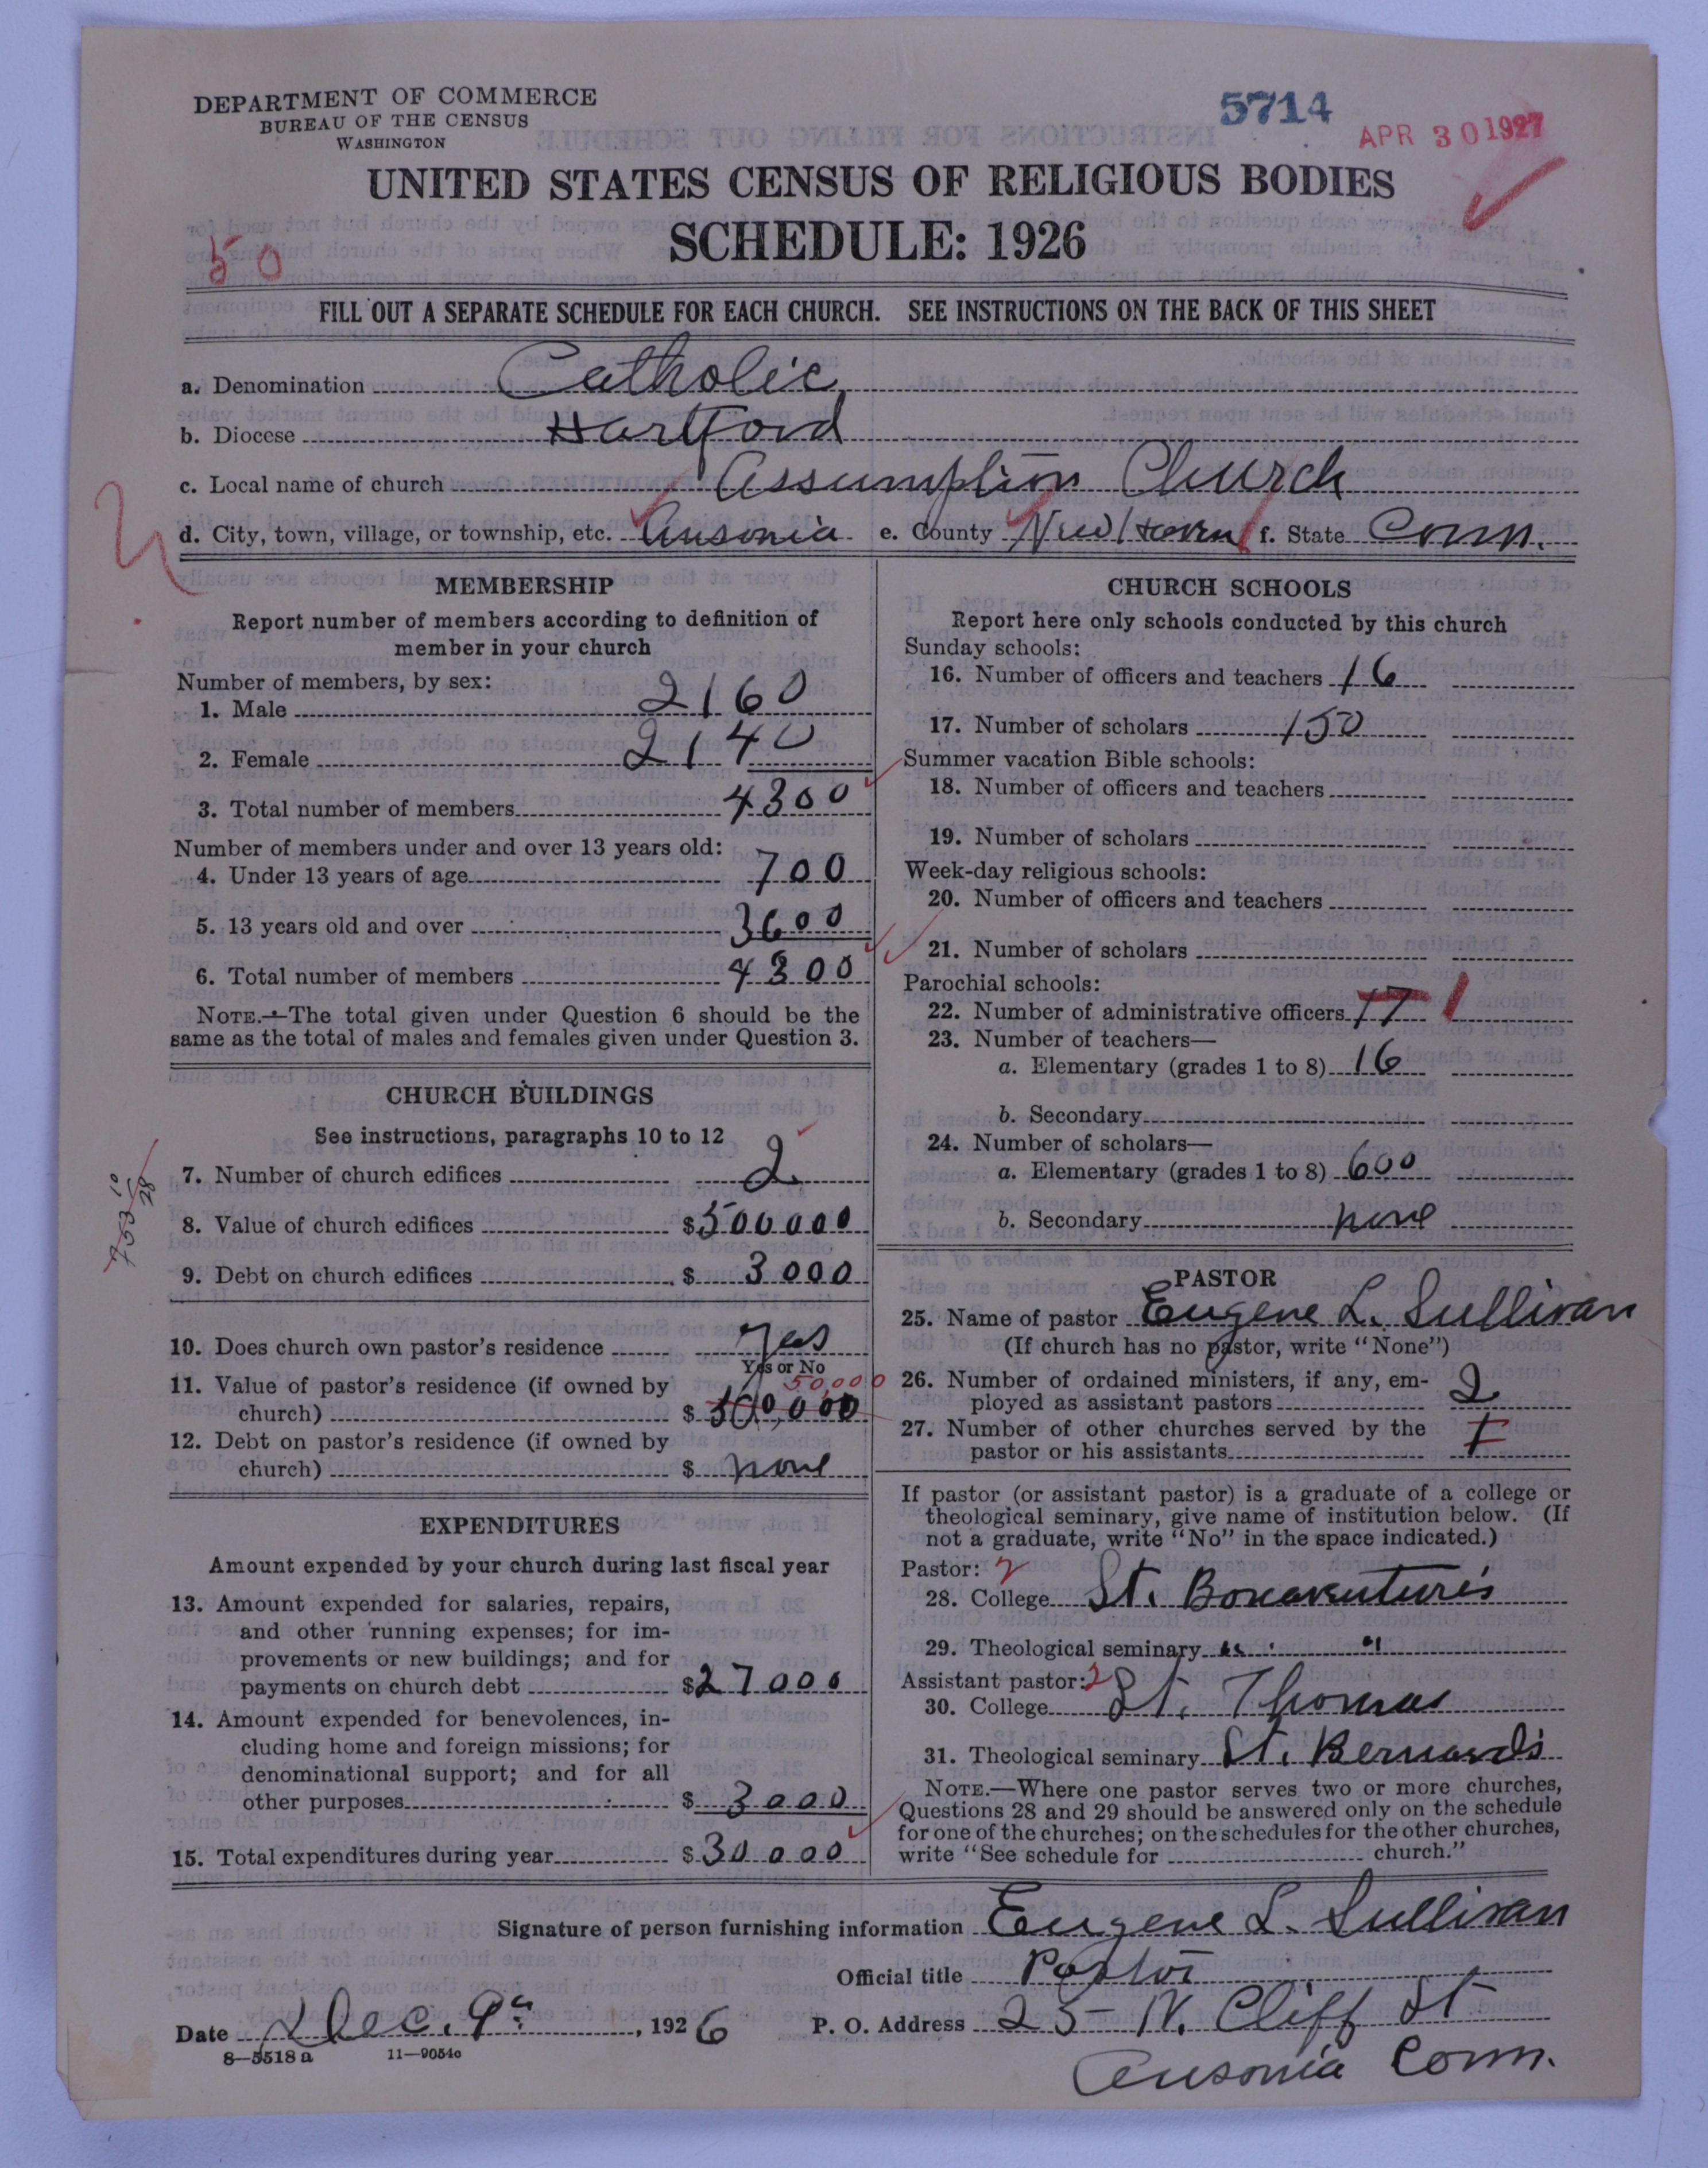 DEPARTMENT OF COMMERCE
BUREAU OF THE CENSUS
WASHINGTON
5714
APR 30 1927
UNITED STATES CENSUS OF RELIGIOUS BODIES
SCHEDULE: 1926
50
FILL OUT A SEPARATE SCHEDULE FOR EACH CHURCH. SEE INSTRUCTIONS ON THE BACK OF THIS SHEET
a. Denomination Catholic
b. Diocese Hartford
c. Local name of church Assumption Church
d. City, town, village, or township, etc. Ansonia e. County New Haven f. State Conn.
MEMBERSHIP
Report number of members according to definition of
member in your church
Number of members, by sex:
1. Male 2160
2. Female 2140
3. Total number of members 4300
Number of members under and over 13 years old:
4. Under 13 years of age 700
5. 13 years old and over 3600
6. Total number of members 4300
NOTE.—The total given under Question 6 should be the
same as the total of males and females given under Question 3.
CHURCH BUILDINGS
See instructions, paragraphs 10 to 12
7. Number of church edifices 2
8. Value of church edifices $500000
9. Debt on church edifices $3000
10. Does church own pastor's residence Yes
Yes or No
50,000
11. Value of pastor's residence (if owned by
church) $
12. Debt on pastor's residence (if owned by
church) $ none
EXPENDITURES
Amount expended by your church during last fiscal year
13. Amount expended for salaries, repairs,
and other running expenses; for im-
provements or new buildings; and for
payments on church debt $27000
14. Amount expended for benevolences, in-
cluding home and foreign missions; for
denominational support; and for all
other purposes $3000
15. Total expenditures during year $30000
CHURCH SCHOOLS
Report here only schools conducted by this church
Sunday schools:
16. Number of officers and teachers 16
17. Number of scholars 150
Summer vacation Bible schools:
18. Number of officers and teachers
19. Number of scholars
Week-day religious schools:
20. Number of officers and teachers
21. Number of scholars
Parochial schools:
22. Number of administrative officers 17 1
23. Number of teachers—
a. Elementary (grades 1 to 8) 16
b. Secondary
24. Number of scholars—
a. Elementary (grades 1 to 8) 600
b. Secondary none
PASTOR
25. Name of pastor Eugene L. Sullivan
(If church has no pastor, write "None")
26. Number of ordained ministers, if any, em-
ployed as assistant pastors 2
27. Number of other churches served by the
pastor or his assistants
If pastor (or assistant pastor) is a graduate of a college or
theological seminary, give name of institution below. (If
not a graduate, write "No" in the space indicated.)
Pastor: 2
28. College St. Bonaventure's
29. Theological seminary " "
Assistant pastor: 2
30. College St. Thomas
31. Theological seminary St. Bernard's
NOTE.—Where one pastor serves two or more churches,
Questions 28 and 29 should be answered only on the schedule
for one of the churches; on the schedules for the other churches,
write "See schedule for church."
Signature of person furnishing information Eugene L. Sullivan
Official title Pastor
Date Dec. 9, 1926 P. O. Address 25 N. Cliff St
8—5518a 11—9054c
Ansonia Conn.